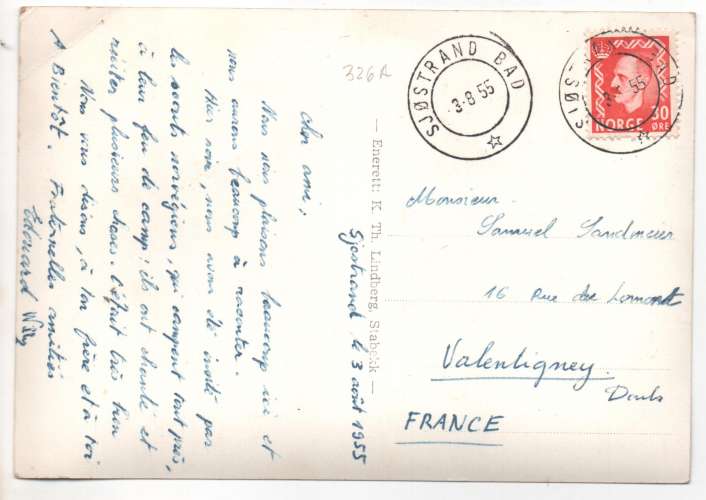 Sjøstrand le 3 août 1955
Cher ami,
Nous nous plaisons beaucoup ici et
nous aurons beaucoup à raconter.
Hier soir, nous avons été invité par
les scouts norvégiens, qui campent tout près,
à leur feu de camp; ils ont chanté et
plusieurs choses. C'était très bien
Nous vous disons, à ton frère et à toi
A Bientôt. Fraternelles amitiés
Edouard Willy
— Enerett: K. Th. Lindberg, Stabekk —
326A
SJØSTRAND BAD
3-8 55
SJØSTRAND BAD
55
NORGE
30
ØRE
Monsieur
Samuel Sandmeier
16 Rue du Lomont
Valentigney.
Doubs
FRANCE